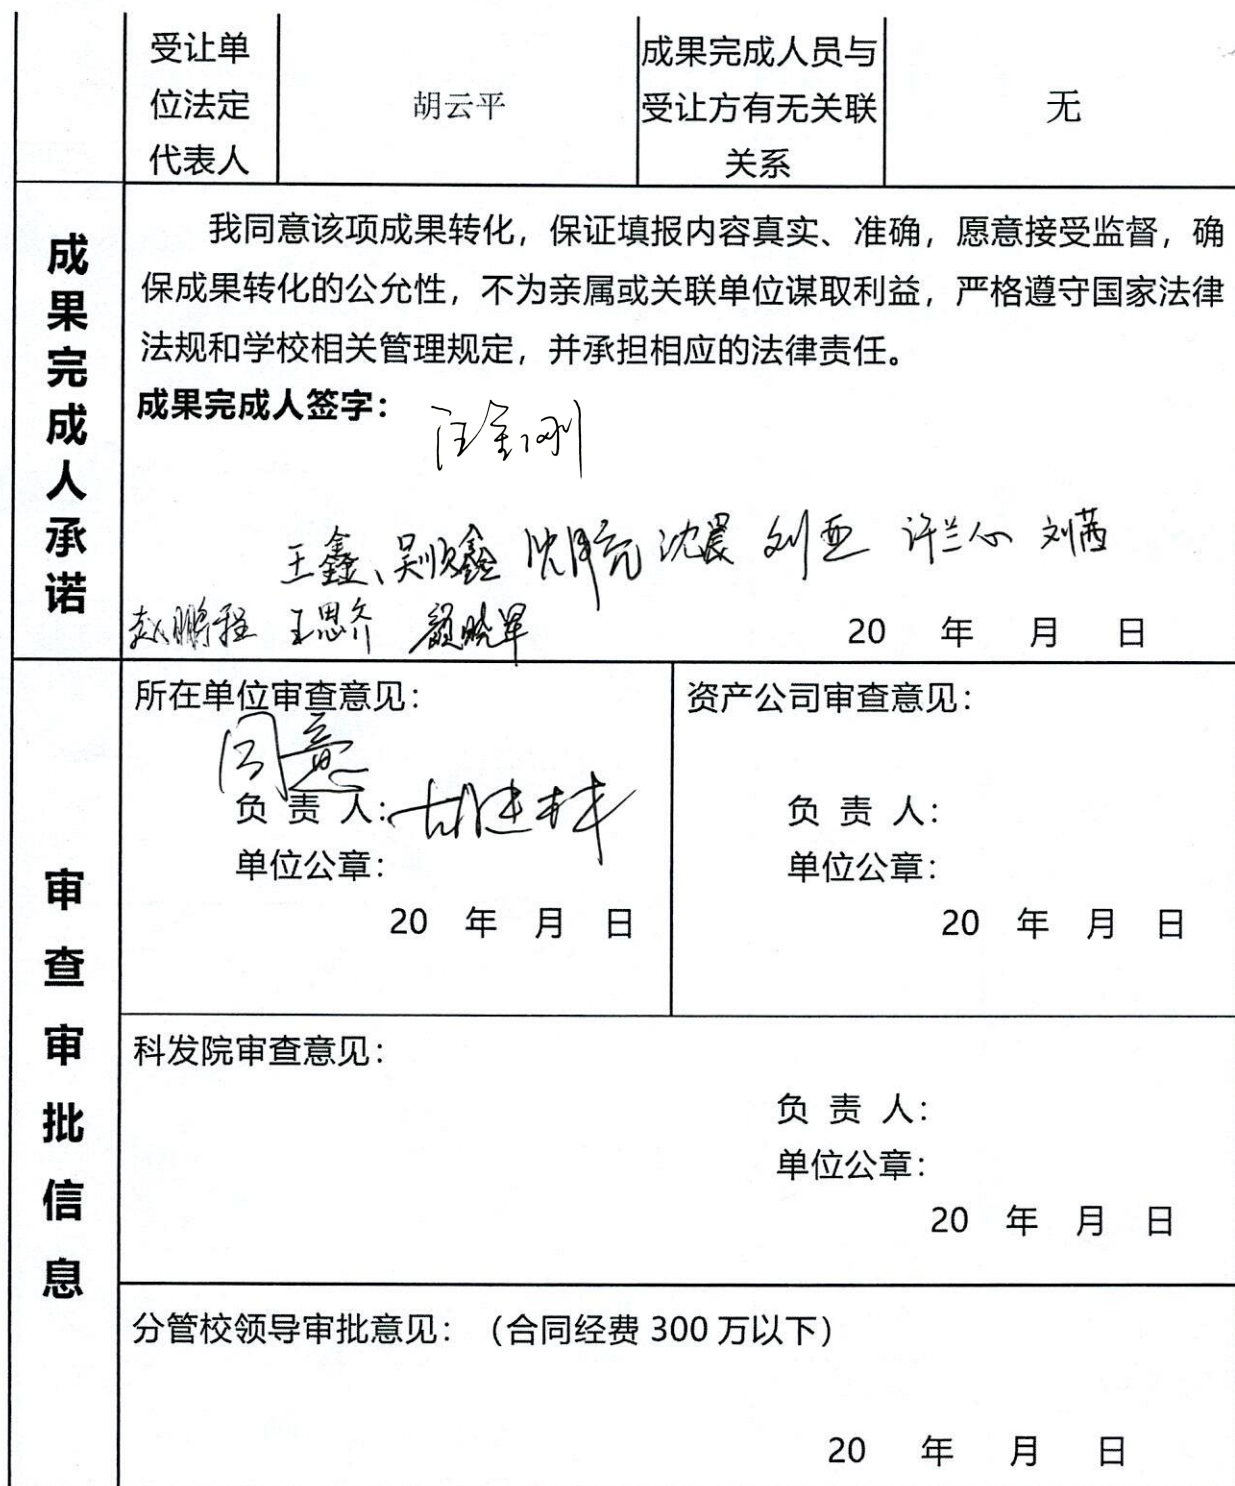 受让单
位法定
代表人
胡云平
成果完成人员与
受让方有无关联
关系
无
成果完成人承诺
我同意该项成果转化，保证填报内容真实、准确，愿意接受监督，确
保成果转化的公允性，不为亲属或关联单位谋取利益，严格遵守国家法律
法规和学校相关管理规定，并承担相应的法律责任。
成果完成人签字：
汪金刚
王鑫、吴顺鑫 沈晨 刘亚 许兰心 刘茜
赵鹏程 王思齐 颜晓军
20 年 月 日
审查审批信息
所在单位审查意见：
同意
负 责 人：胡建林
单位公章：
20 年 月 日
资产公司审查意见：
负 责 人：
单位公章：
20 年 月 日
科发院审查意见：
负 责 人：
单位公章：
20 年 月 日
分管校领导审批意见：（合同经费 300 万以下）
20 年 月 日